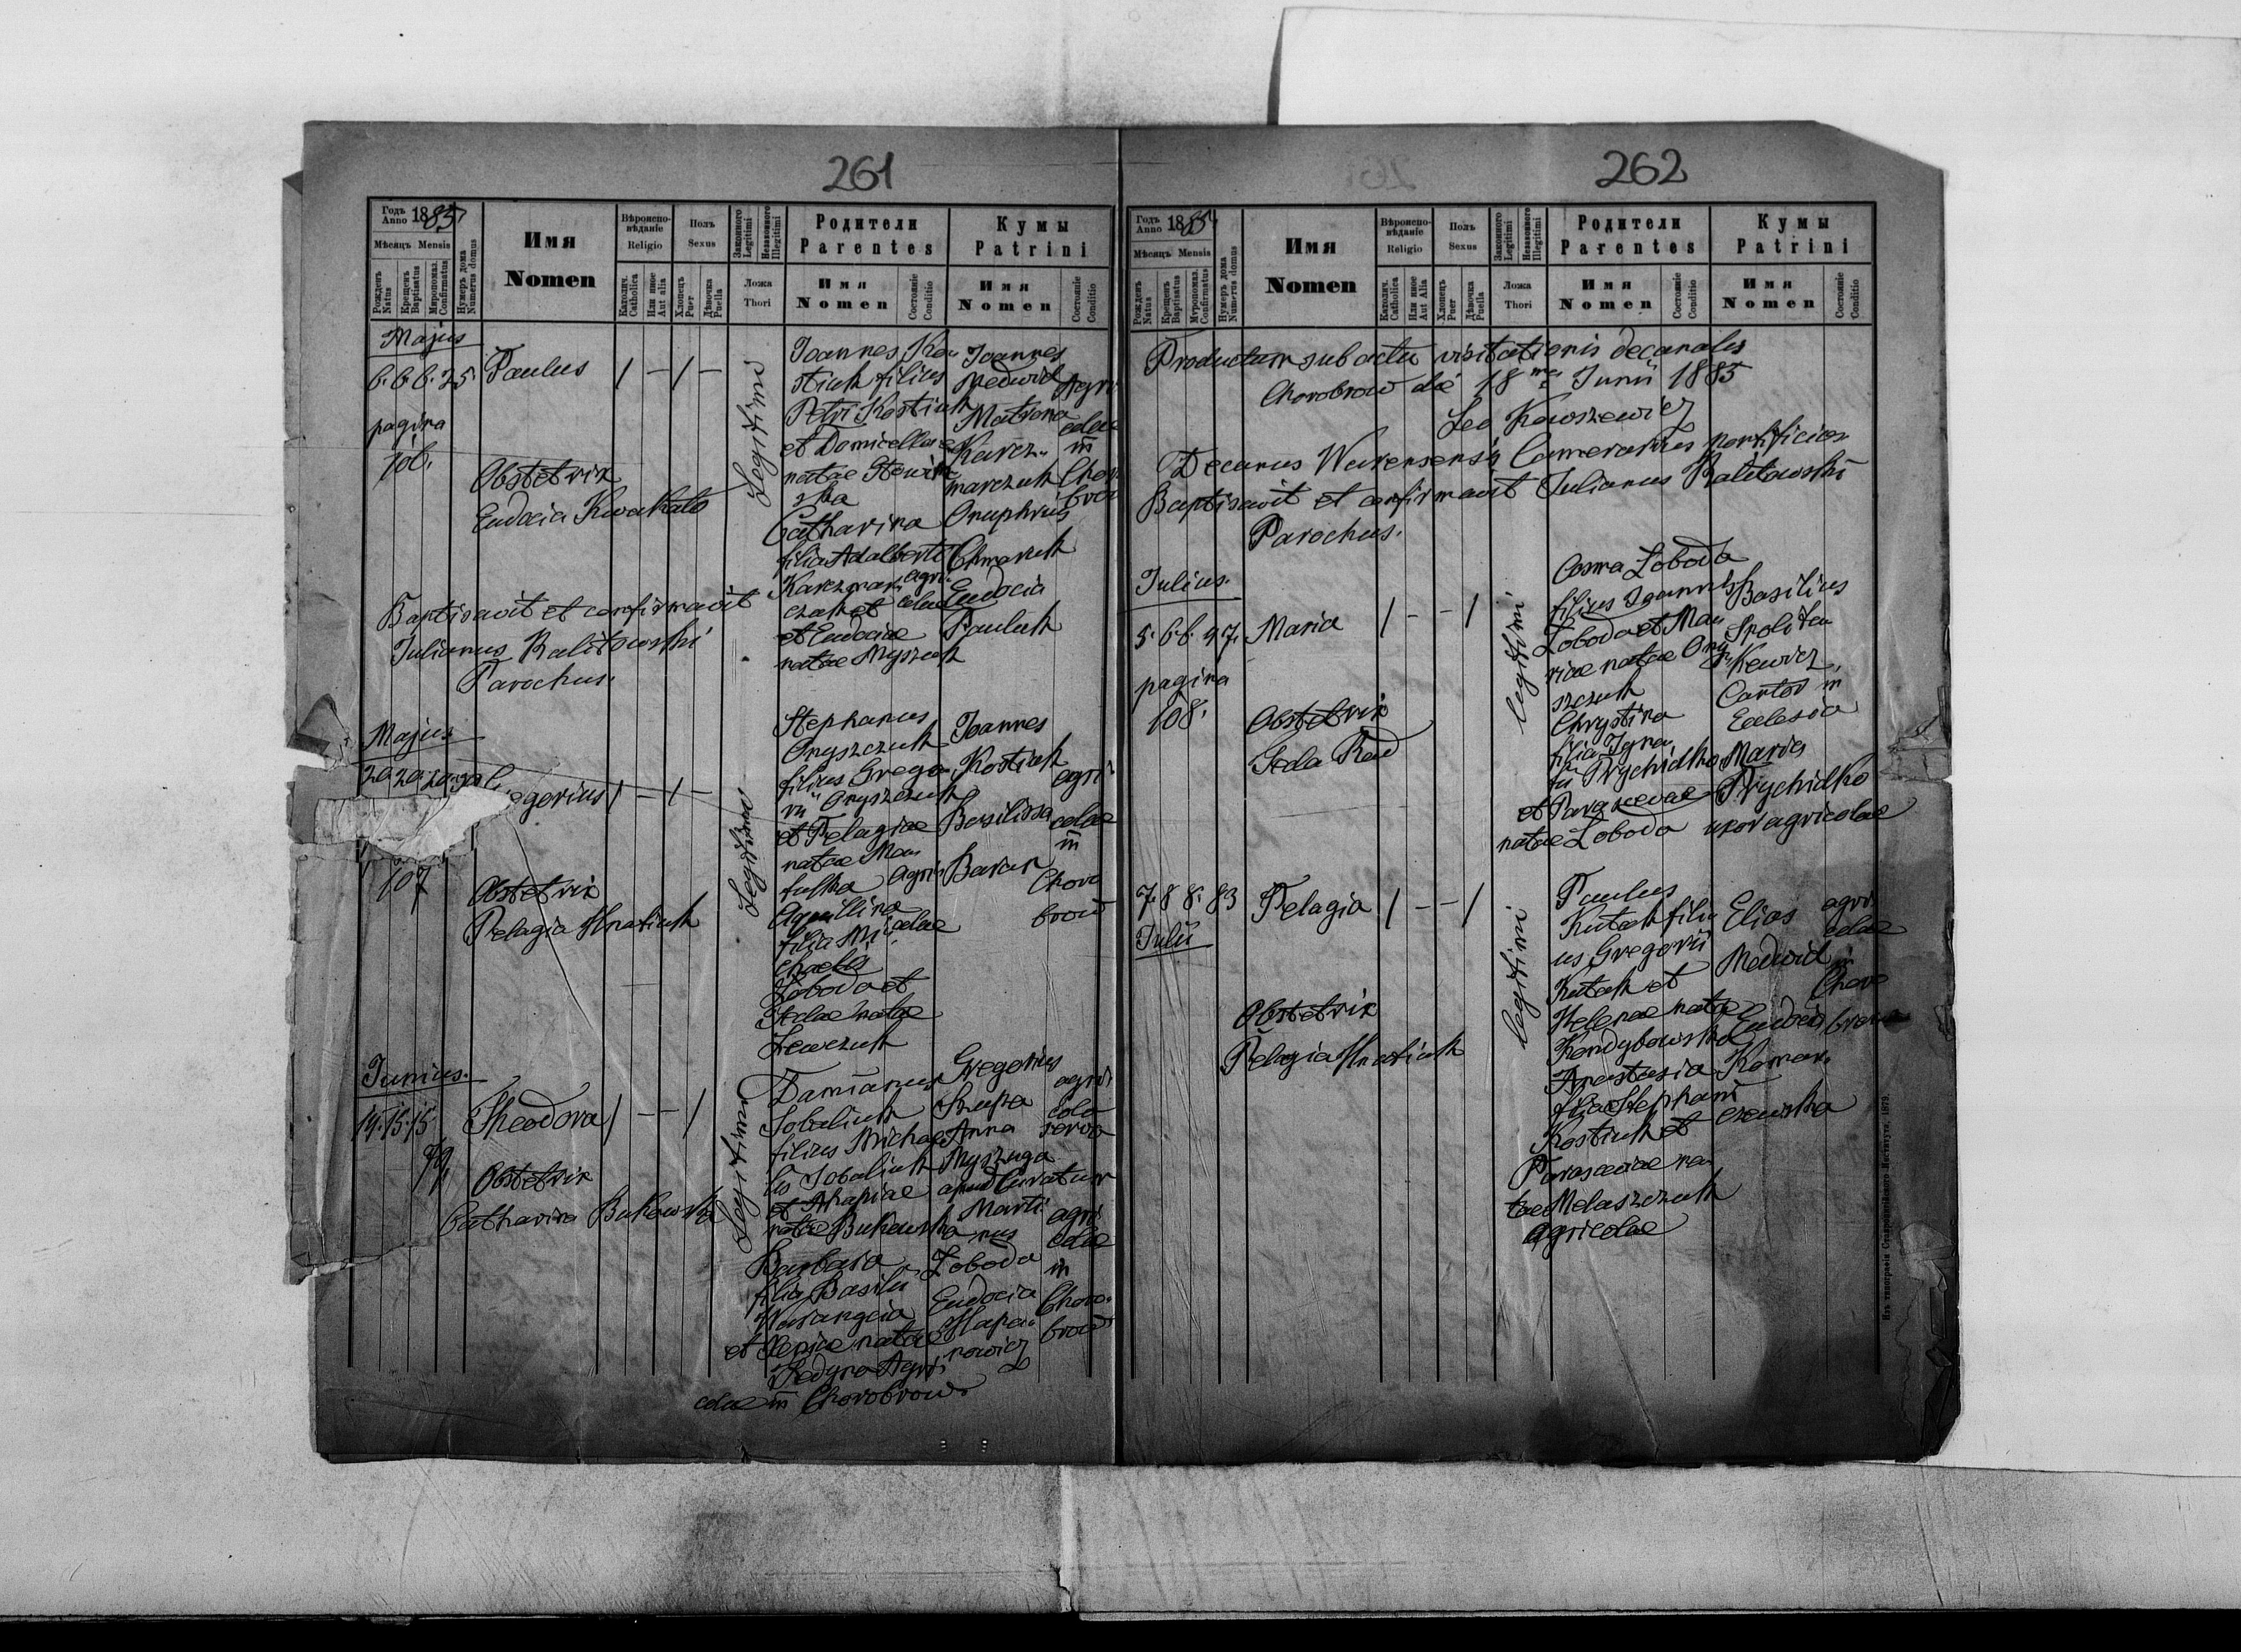 261
Годъ Anno 1885
Мѣсяцъ Mensis
Рожденъ Natus
Крещенъ Baptisatus
Миропомаз. Confirmatus
Нумеръ дома Numerus domus
Имя
Nomen
Вѣроиспо-
вѣданіе
Religio
Католич. Catholica
Или иное Aut Alia
Полъ
Sexus
Хлопецъ Puer
Дѣвочка Puella
Законного Legitimi
Незаконного Illegitimi
Ложа
Thori
Родители
Parentes
Имя
Nomen
Состояніе Conditio
Кумы
Patrini
Имя
Nomen
Состояніе Conditio
Majus
6. 6. 6. 25. Paulus / — / —
pagina
106.
Obstetrix
Eudocia Kwakało
Legitimi
Joannes Ko
stiuk filius
Petri Kostiuk
et Domicellae
natae
ska
Catharina
filia Adalberti
Karczmar agri
czuk et colae
et Eudociae
natae Myszczuk
Joannes
Medwid
Matrona
Karcz
marczuk
Onuphrius
Chmaruk
Eudocia
Pauluk
Agri
colae
in
Choro
brow
Baptisavit et confirmavit
Julianus Kalitowski
Parochus.
Majus
20. 20. 20. Gregorius / — / —
107
Obstetrix
Pelagia Hnatiuk
Legitimi
Stephanus
Onyszczuk
filius Grego
rii Onyszczuk
et Pelagiae
natae Ma
tulka agri
Aquillina
filia Mi colae
chaelis
Łoboda et
Teclae natae
Lewczuk
Joannes
Kostiuk
Basilissa
Baran
agri
colae
in
Choro
brow
Junius.
14. 15. 15. Theodora / — — /
79.
Obstetrix
Catharina Bukowska
Legitimi
Damianus
Sobaliuk
filius Michae
lis Sobaliuk
et Ahapiae
natae Bukowska
Barbara
filia Basilii
et Xeniae natae
Fedyna Agri
colae in Chorobrow
Gregorius
Szupa
Anna
Myszuga
apud Curatum
Marti
nus
Łoboda
Eudocia
Hapa
nowicz
agri
cola
serva
agri
colae
in
Choro
brow
262
Годъ Anno 1885
Мѣсяцъ Mensis
Рожденъ Natus
Крещенъ Baptisatus
Муропомаз. Confirmatus
Нумеръ дома Numerus domus
Имя
Nomen
Вѣроиспо-
вѣданіе
Religio
Католич. Catholica
Или иное Aut Alia
Полъ
Sexus
Хлопецъ Puer
Дѣвочка Puella
Законного Legitimi
Незаконного Illegitimi
Ложа
Thori
Родители
Parentes
Имя
Nomen
Состояніе Conditio
Кумы
Patrini
Имя
Nomen
Состояніе Conditio
Productum sub actu visitationis decanalis
Chorobrow die 18ma Junii 1885
Leo Kowszewicz
Decanus Warensensis Camerarius pontificius
Baptisavit et confirmavit Julianus Kalitowski
Parochus.
Julius.
5. 6. 6. 47. Maria / — — /
pagina
108.
Obstetrix
Tecla Rad
legitimi
Cosma Łoboda
filius Joannis
Łoboda et Ma
riae natae Ony
szczuk
Chrystina
filia Igna
tii Prychidko
et Parascevae
natae Łoboda
Basilius
Spolita
kewicz
Cantor in
Ecclesia
Maria
Prychidko
uxor agricolae
7. 8. 8. 83 Pelagia / — — /
Julii
Obstetrix
Pelagia Hnatiuk
legitimi
Paulus
Kutak fili
us Gregorii
Kutak et
Helenae natae
Kondybowska
Anastasia
filia Stephani
Kostiuk et
Parasceviae na
tae Melaszczuk
agricolae
Elias
Medwid
Eudocia
Komar
czewska
agri
colae
in
Choro
brow
Изъ типографіи Ставропигійского Института, 1879.